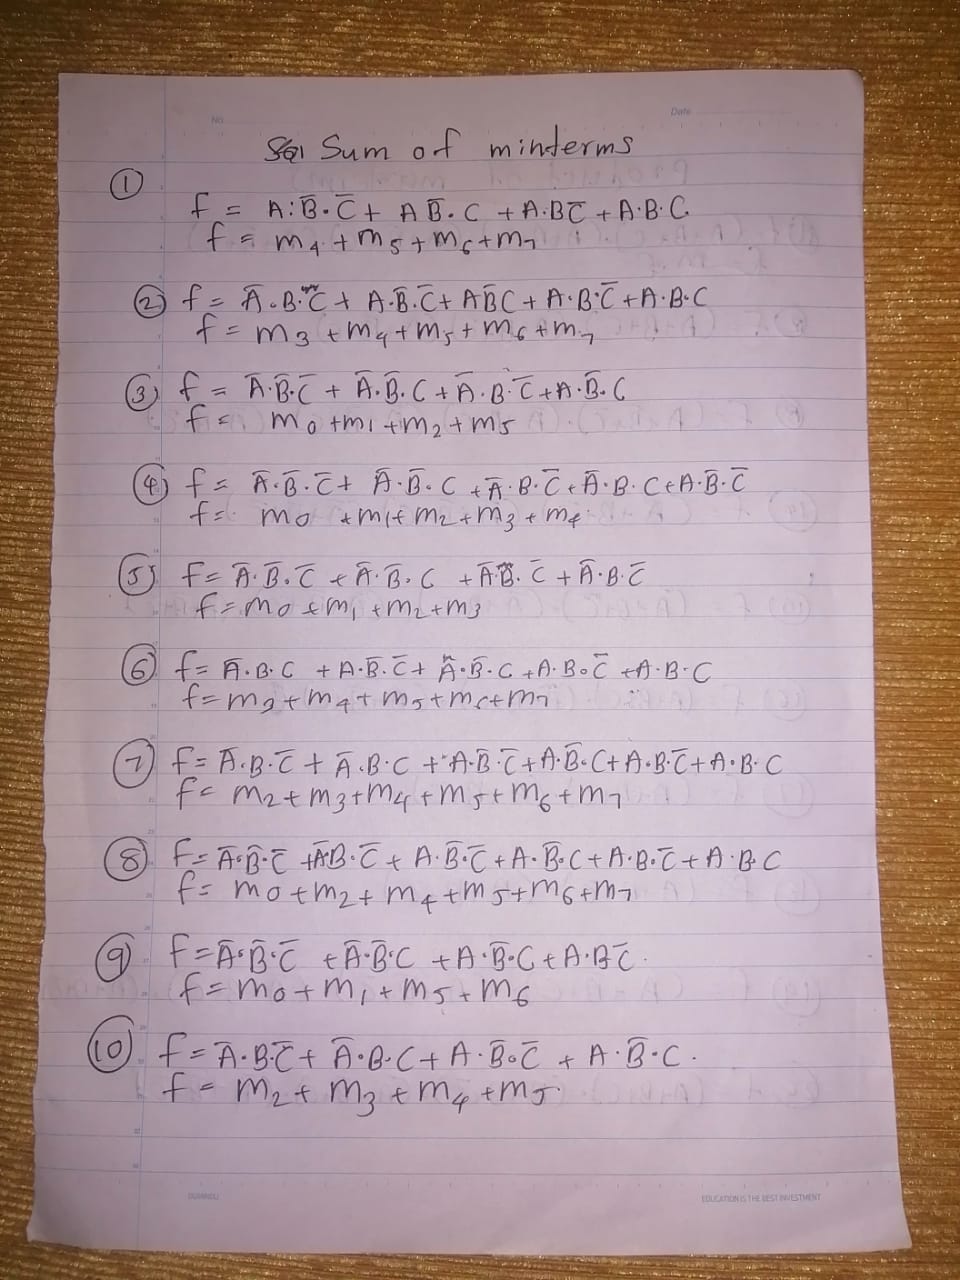 No
Date
Sum of minterms
①
f = A.B̅.C̅ + A B̅.C + A.BC̅ + A.B.C
f = m4 + m5 + m6 + m7
② f = A̅.B.C̅ + A.B̅.C̅ + AB̅C + A.B.C̅ + A.B.C
f = m3 + m4 + m5 + m6 + m7
③ f = A̅.B̅.C̅ + A̅.B̅.C + A̅.B.C̅ + A.B̅.C
f = m0 + m1 + m2 + m5
④ f = A̅.B̅.C̅ + A̅.B̅.C + A̅.B.C̅ + A̅.B.C + A.B̅.C̅
f = m0 + m1 + m2 + m3 + m4
⑤ f = A̅.B̅.C̅ + A̅.B̅.C + A̅.B.C̅ + A̅.B.C̅
f = m0 + m1 + m2 + m3
⑥ f = A̅.B.C + A.B̅.C̅ + A.B̅.C + A.B.C̅ + A.B.C
f = m3 + m4 + m5 + m6 + m7
⑦ f = A̅.B.C̅ + A̅.B.C + A.B̅.C̅ + A.B̅.C + A.B.C̅ + A.B.C
f = m2 + m3 + m4 + m5 + m6 + m7
⑧ f = A̅.B̅.C̅ + A̅.B.C̅ + A.B̅.C̅ + A.B̅.C + A.B.C̅ + A.B.C
f = m0 + m2 + m4 + m5 + m6 + m7
⑨ f = A̅.B̅.C̅ + A̅.B̅.C + A.B̅.C + A.BC̅.
f = m0 + m1 + m5 + m6
⑩ f = A̅.B.C̅ + A̅.B.C + A.B̅.C̅ + A.B̅.C.
f = m2 + m3 + m4 + m5
EDUCATION IS THE BEST INVESTMENT